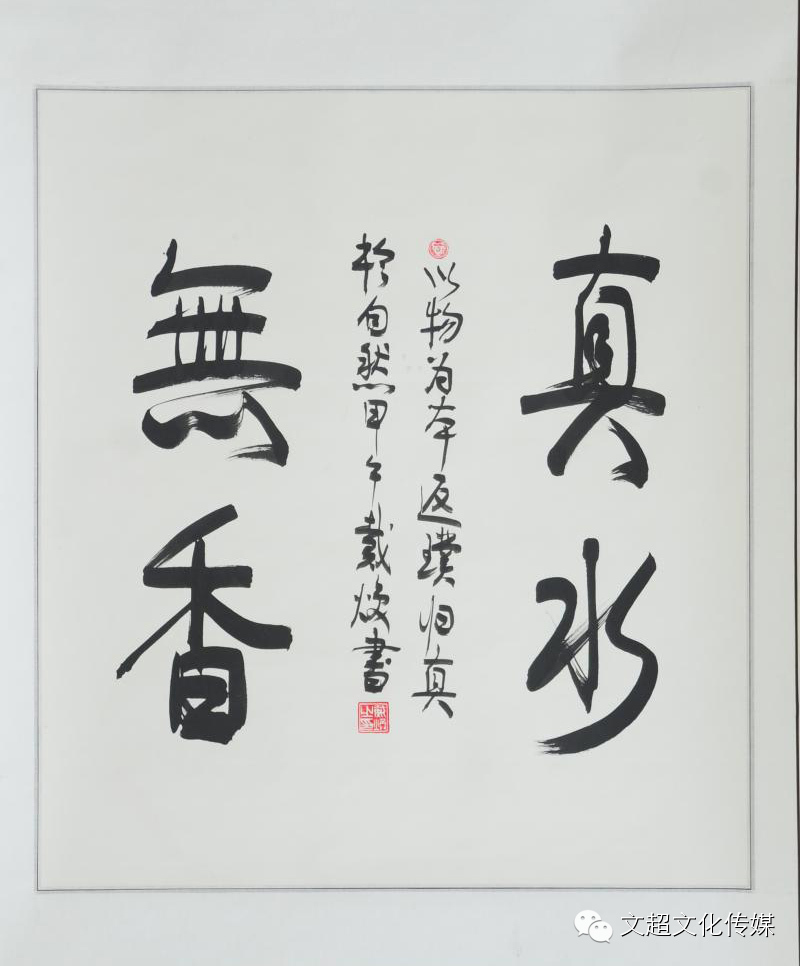 真水
以物为本返璞归真
於自然甲午戴焕书
無香
文超文化传媒